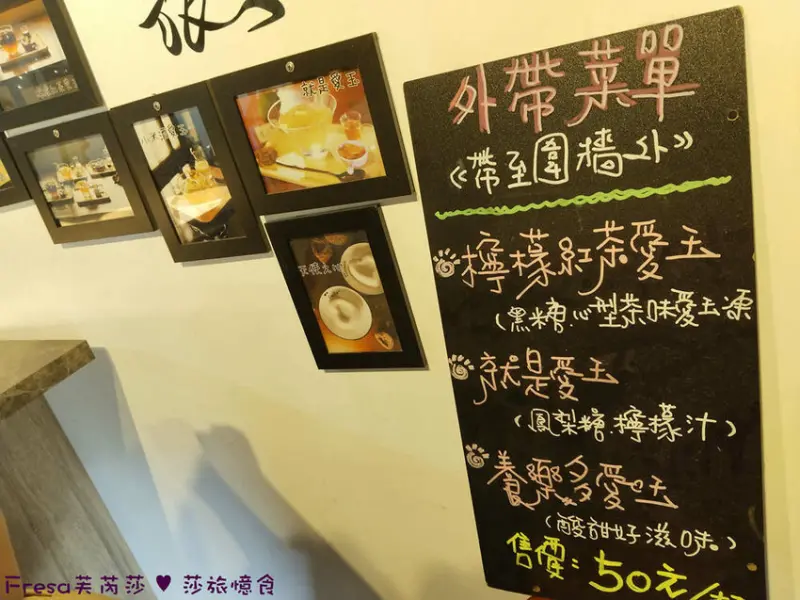 就是愛玉
外帶菜單
《帶至圍牆外》
檸檬紅茶愛玉
(黑糖.心型茶味愛玉凍
就是愛玉
(鳳梨糖.檸檬汁)
養樂多愛玉
(酸甜好滋味。)
售價:50元/
Fresa芙芮莎 ♥ 莎旅憶食